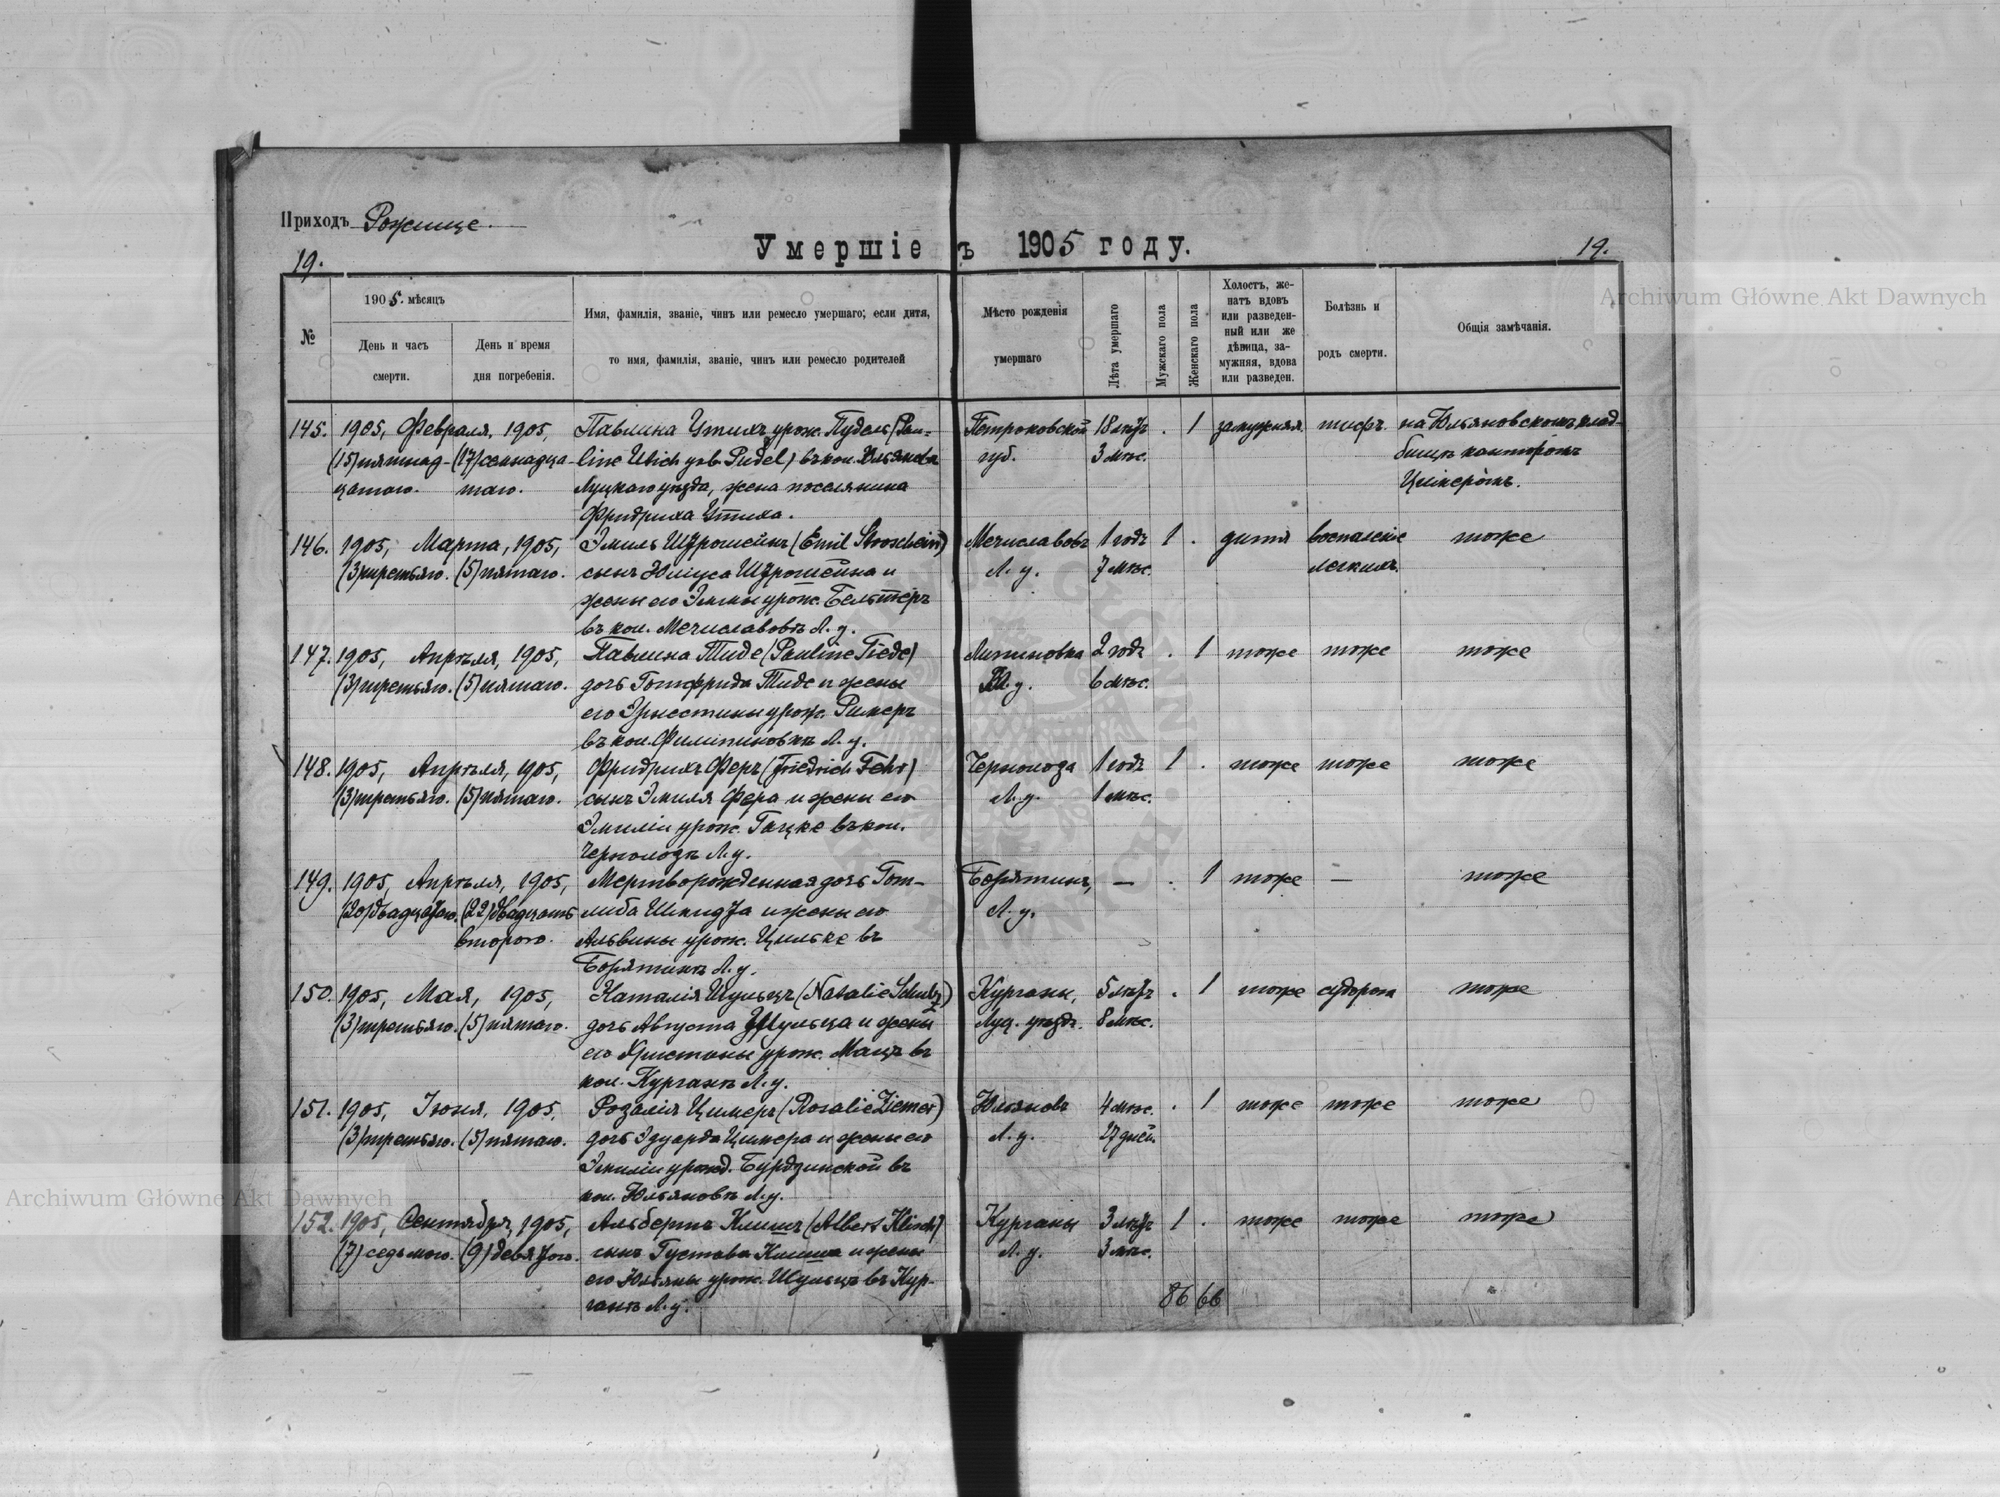 Приходъ Рожище.
Умершіе въ 1905 году.
19.
19.
№
1905. мѣсяцъ
День и часъ смерти.
День и время дня погребенія.
Имя, фамилія, званіе, чинъ или ремесло умершаго; если дитя,
то имя, фамилія, званіе, чинъ или ремесло родителей
Мѣсто рожденія
умершаго
Лѣта умершаго
Мужскаго пола
Женскаго пола
Холостъ, же-
натъ вдовъ
или разведен-
ный или же
дѣвица, за-
мужняя, вдова
или разведен.
Болѣзнь и
родъ смерти.
Общія замѣчанія.
145. 1905, Февраля, 1905, Павлина Утихъ урож. Пудель (Pau- Петроковской 18 лѣтъ . 1 замужняя тифъ на Юльяновскомъ клад-
(15) пятнад- (17) семнадца- line Utich geb. Pudel) въ кол. Юльяновъ губ. 3 мѣс. бищѣ канторомъ
цатаго. таго. Луцкаго уѣзда, жена поселянина Цимеромъ.
Фридриха Утиха.
146. 1905, Марта, 1905, Эмиль Штрошейнъ (Emil Stroschein) Мечиславовъ 1 годъ 1 . дитя воспаленіе тоже
(3) третьяго. (5) пятаго. сынъ Юліуса Штрошейна и Л. у. 7 мѣс. легкихъ.
жены его Эммы урож. Бельтеръ
въ кол. Мечиславовъ Л. у.
147. 1905, Апрѣля, 1905, Павлина Тиде (Pauline Tiede) 2 года . 1 тоже тоже тоже
(3) третьяго. (5) пятаго. дочь Готфрида Тиде и жены у. 6 мѣс.
его Эрнестины урож. Ример
въ кол. Филипиновкѣ Л. у.
148. 1905, Апрѣля, 1905, Фридрихъ Феръ (Friedrich Fehr) Чернолоза 1 годъ 1 . тоже тоже тоже
(3) третьяго. (5) пятаго. сынъ Эмиля Фера и жены его Л. у. 1 мѣс.
Эмиліи урож. Гацке въ кол.
Чернолозѣ Л. у.
149. 1905, Апрѣля, 1905, Мертворожденная дочь Гот- Борятинъ, — . 1 тоже — тоже
(20) двадцатаго. (22) двадцать либа Шмидта и жены его Л. у.
второго. Альвины урож. Цильке въ
Борятинѣ Л. у.
150. 1905, Мая, 1905, Наталія Шульцъ (Natalie Schulz) Курганы, 5 лѣтъ . 1 тоже судорога тоже
(3) третьяго. (5) пятаго. дочь Августа Шульца и жены Луц. уѣзд. 8 мѣс.
его Христины урож. Мацъ въ
кол. Курганѣ Л. у.
151. 1905, Іюня, 1905, Розалія Цимеръ (Rosalie Ziemer) Юльяновъ 4 мѣс. . 1 тоже тоже тоже
(3) третьяго. (5) пятаго. дочь Эдуарда Цимера и жены его Л. у. 27 дней.
Эмиліи урожд. Бурдзинской въ
кол. Юльяновъ Л. у.
152. 1905, Сентября, 1905, Альбертъ Клишъ (Albert Klisch) Курганы 3 лѣтъ 1 . тоже тоже тоже
(7) седьмого. (9) девятого. сынъ Густава Клиша и жены Л. у. 3 мѣс.
его Юльяны урож. Шульцъ въ Кур-
ганѣ Л. у.
86 66
Archiwum Główne Akt Dawnych
Archiwum Główne Akt Dawnych